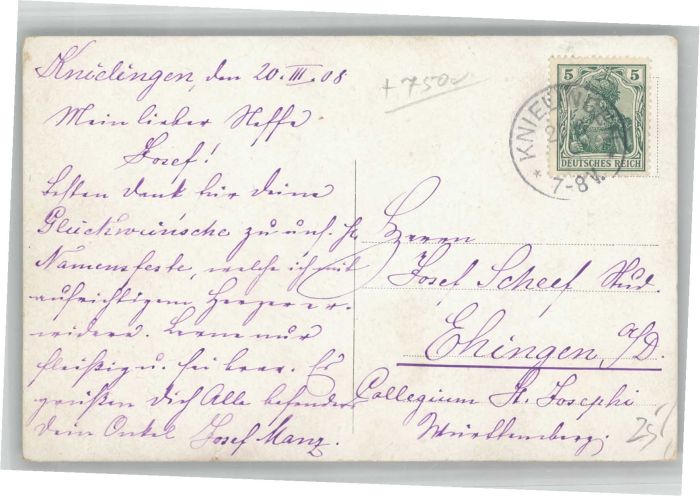 Knielingen, den 20. III. 08
+ 750
Mein lieber Neffe
Josef!
Besten Dank für deine
Glückwünsche zu uns. h.
Namensfeste, welche ich mit
aufrichtigem Herzen er-
widere. Lerne nur
fleißig u. sei brav. Es
grüßen dich Alle besonders
dein Onkel Josef Manz.
5 5
DEUTSCHES REICH
KNIELINGEN
* 7-8 V.
Herrn
Josef Scheef Stud.
Ehingen, a/D.
Collegium St. Josephi
Württemberg.
25/